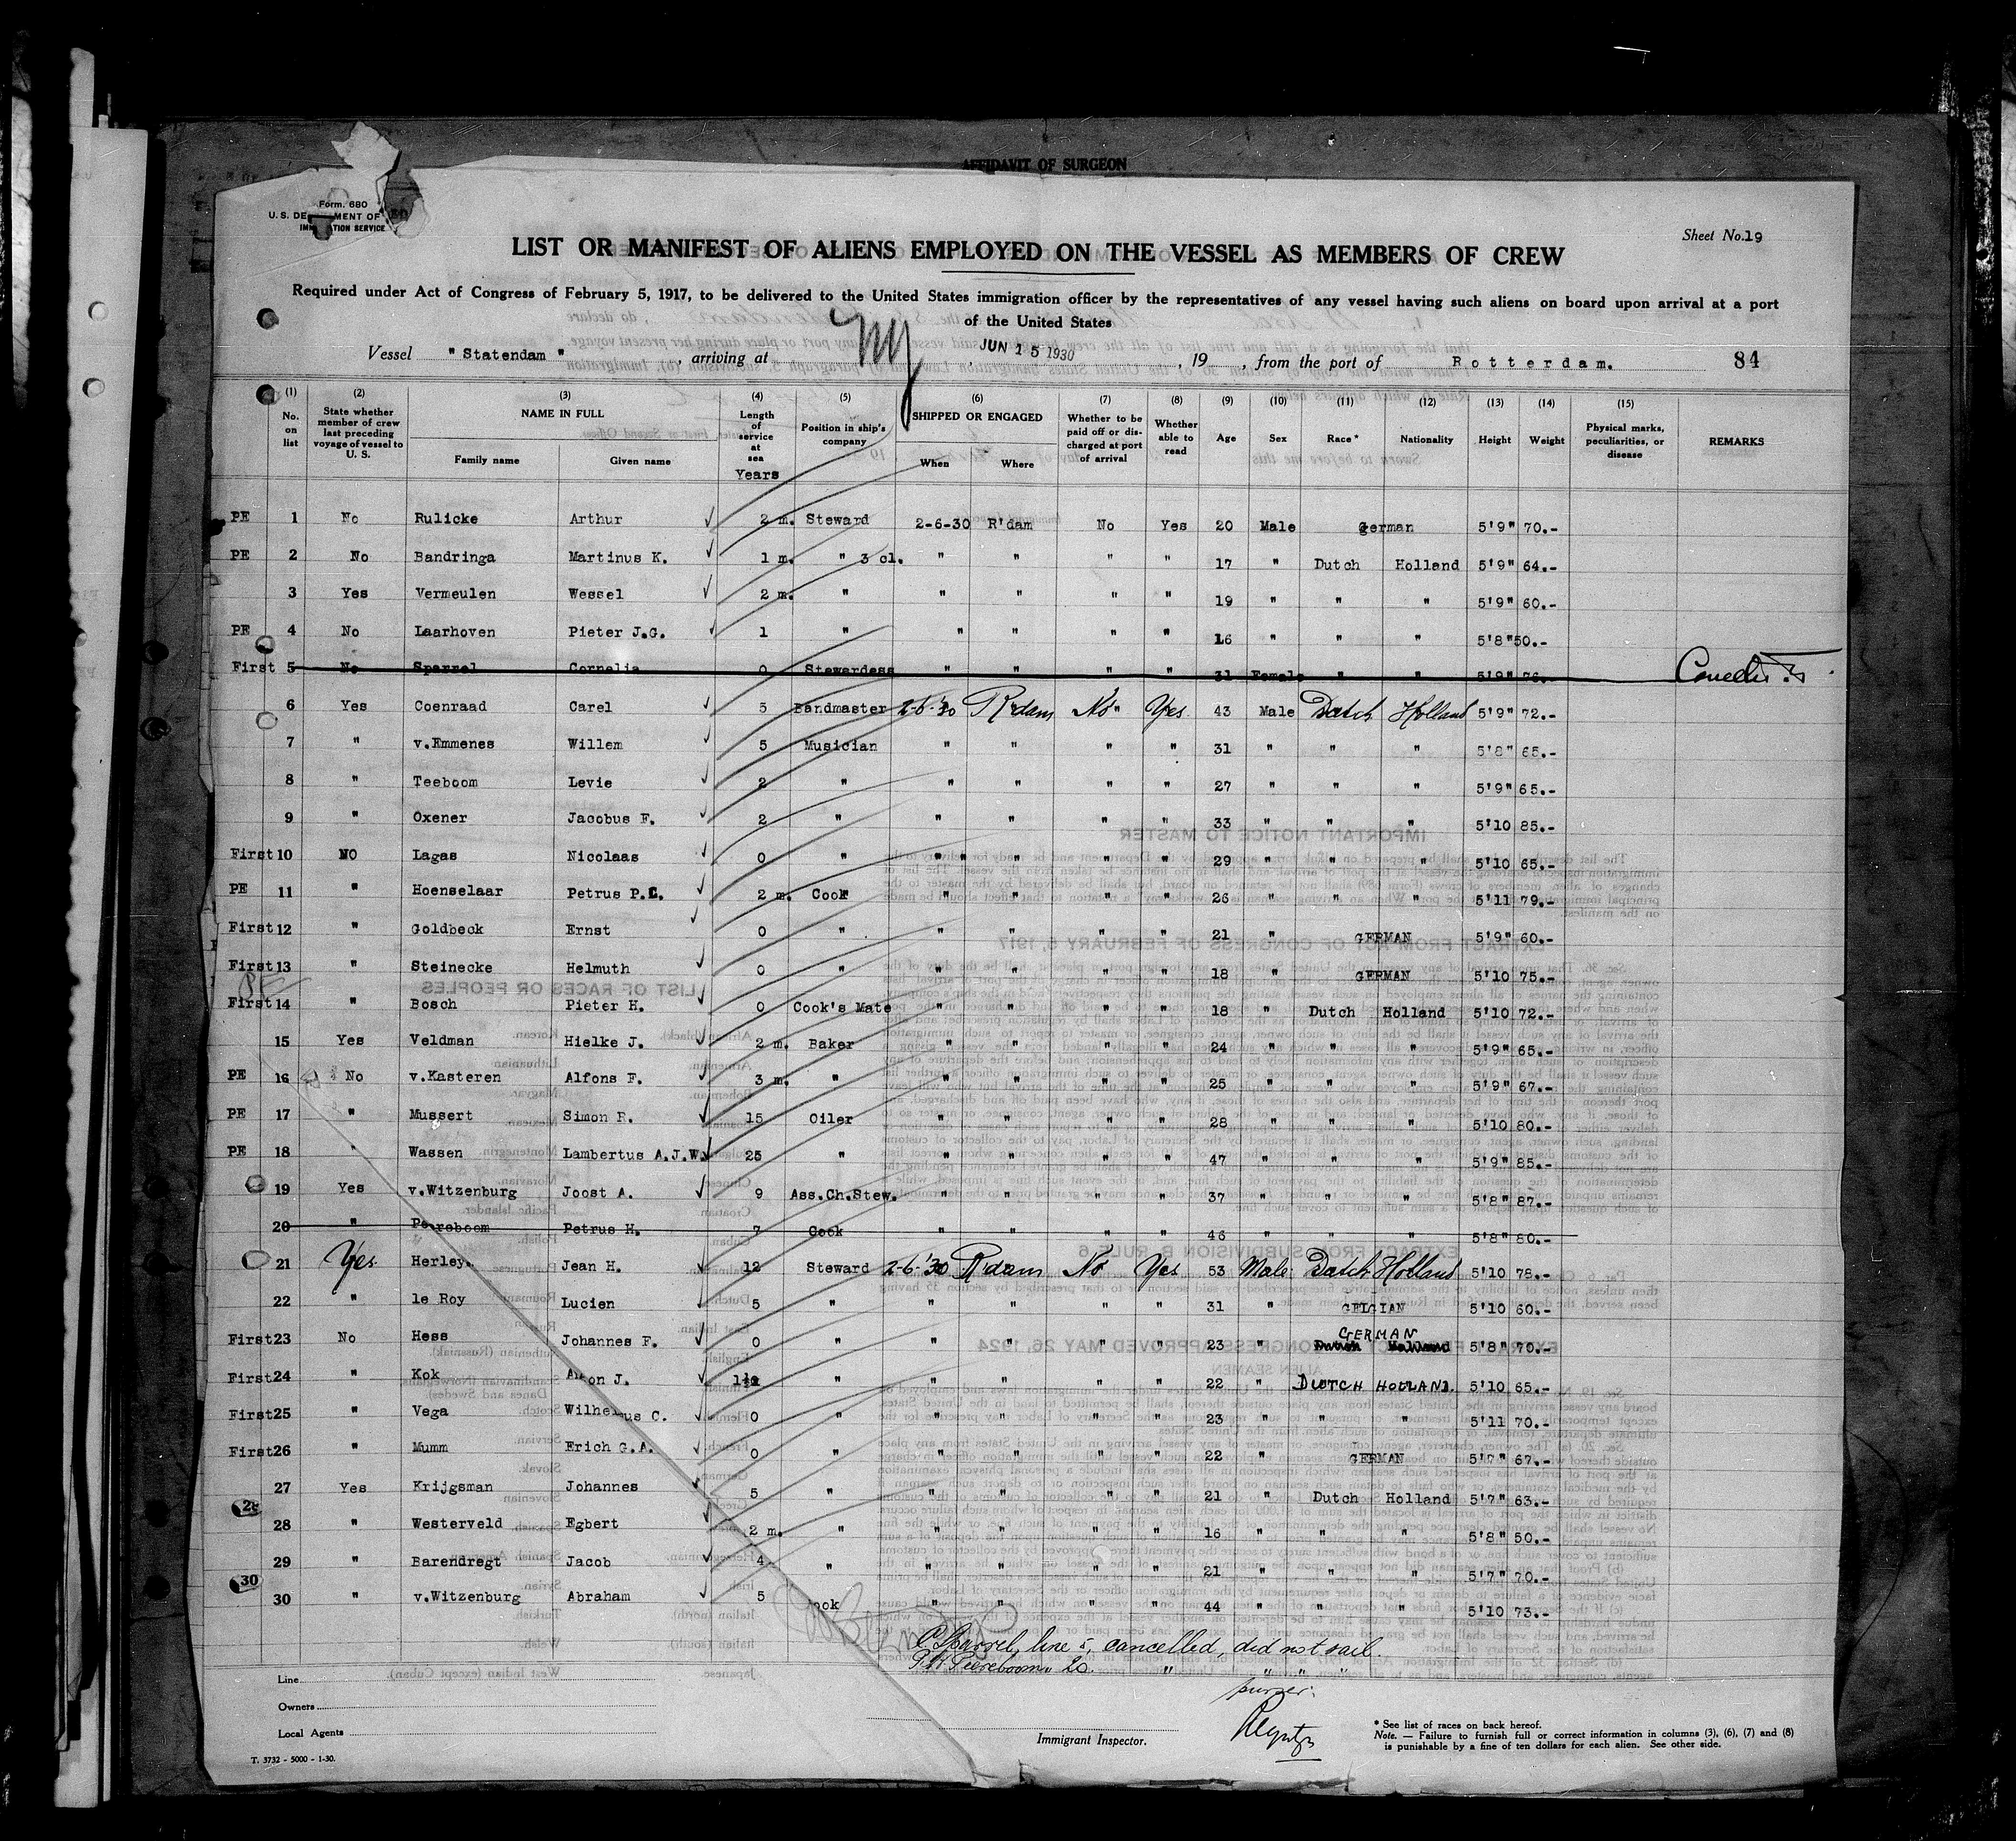 AFFIDAVIT OF SURGEON
Form. 680
U. S. DE MENT OF
IMM TION SERVICE
Sheet No. 19
LIST OR MANIFEST OF ALIENS EMPLOYED ON THE VESSEL AS MEMBERS OF CREW
Required under Act of Congress of February 5, 1917, to be delivered to the United States immigration officer by the representatives of any vessel having such aliens on board upon arrival at a port
of the United States
Vessel "Statendam", arriving at NY, JUN 15 1930, 19 , from the port of Rotterdam. 84
(1) (2) (3) (4) (5) (6) (7) (8) (9) (10) (11) (12) (13) (14) (15)
No. on list State whether member of crew last preceding voyage of vessel to U. S. NAME IN FULL Family name Given name Length of service at sea Years Position in ship's company SHIPPED OR ENGAGED When Where Whether to be paid off or discharged at port of arrival Whether able to read Age Sex Race * Nationality Height Weight Physical marks, peculiarities, or disease REMARKS
PE 1 No Rulicke Arthur 2 m. Steward 2-6-30 R'dam No Yes 20 Male German 5'9" 70.-
PE 2 No Bandringa Martinus K. 1 m. " 3 cl. " " " " 17 " Dutch Holland 5'9" 64.-
3 Yes Vermeulen Wessel 2 m. " " " " " 19 " " " 5'9" 60.-
PE 4 No Laarhoven Pieter J.G. 1 " " " " " 16 " " " 5'8" 50.-
First 5 No Sparrel Cornelia 0 Stewardess " " " " 31 Female " " 5'9" 76.-
6 Yes Coenraad Carel 5 Bandmaster 2-6-'30 R'dam No" Yes 43 Male Dutch Holland 5'9" 72.-
7 " v.Emmenes Willem 5 Musician " " " " 31 " " " 5'8" 65.-
8 " Teeboom Levie 2 " " " " " 27 " " " 5'9" 65.-
9 " Oxener Jacobus F. 2 " " " " " 33 " " " 5'10 85.-
First 10 NO Lagas Nicolaas 0 " " " " " 29 " " " 5'10 65.-
PE 11 " Hoenselaar Petrus P.C. 2 m. Cook " " " " 26 " " " 5'11 79.-
First 12 " Goldbeck Ernst 0 " " " " " 21 " GERMAN 5'9" 60.-
First 13 " Steinecke Helmuth 0 " " " " " 18 " GERMAN 5'10 75.-
PE
First 14 " Bosch Pieter H. 0 Cook's Mate " " " " 18 " Dutch Holland 5'10 72.-
15 Yes Veldman Hielke J. 2 m. Baker " " " " 24 " " " 5'9" 65.-
PE 16 No v.Kasteren Alfons F. 3 m. " " " " " 25 " " " 5'9" 67.-
PE 17 " Mussert Simon R. 15 Oiler " " " " 28 " " " 5'10 80.-
PE 18 " Wassen Lambertus A.J.W. 25 " " " " " 47 " " " 5'9" 85.-
19 Yes v.Witzenburg Joost A. 9 Ass.Ch.Stew. " " " " 37 " " " 5'8" 87.-
20 " Pe reboom Petrus H. 7 Cook " " " " 46 " " " 5'8" 80.-
21 Yes Herley Jean H. 12 Steward 2-6-'30 R'dam No Yes 53 Male Dutch Holland 5'10 78.-
22 " le Roy Lucien 5 " " " " " 31 " GELGIAN 5'10 60.-
First 23 No Hess Johannes F. 0 " " " " " 23 " GERMAN Dutch Holland 5'8" 70.-
First 24 " Kok on J. " " " " " 22 " DUTCH HOLLAND. 5'10 65.-
First 25 " Vega Wilhelmus C. 0 " " " " " 23 " " " 5'11 70.-
First 26 " Mumm Erich G.A. 0 " " " " " 22 " GERMAN 5'7" 67.-
27 Yes Krijgsman Johannes 5 " " " " " 21 " Dutch Holland 5'7" 63.-
28 " Westerveld Egbert 2 m. " " " " " 16 " " " 5'8" 50.-
29 " Barendregt Jacob 4 " " " " " 21 " " " 5'7" 70.-
30
30 " v.Witzenburg Abraham 5 ook " " " " 44 " " " 5'10 73.-
C. Sparrel, line 5, cancelled, did not sail.
P.H. Peereboom " 20. " " " "
purser.
Line
Owners
Local Agents
Immigrant Inspector.
* See list of races on back hereof.
Note. — Failure to furnish full or correct information in columns (3), (6), (7) and (8)
is punishable by a fine of ten dollars for each alien. See other side.
T. 3732 - 5000 - 1-30.